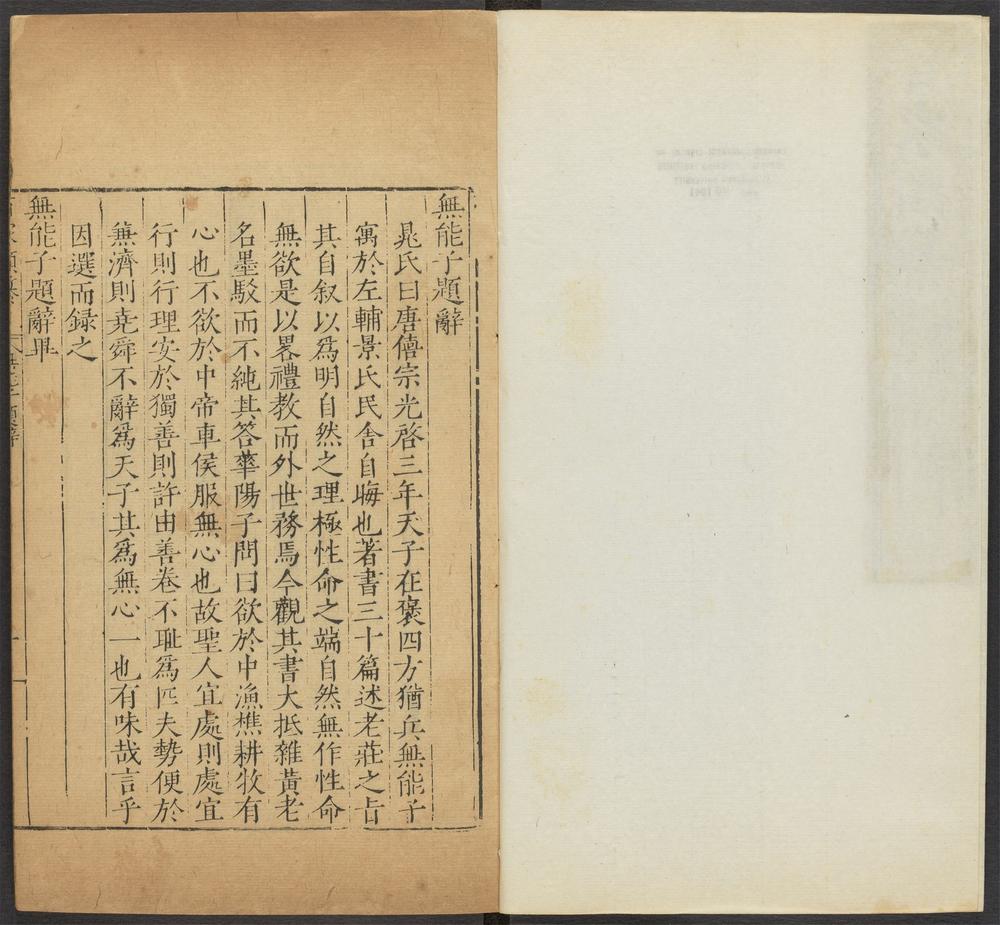 無能子題辭
晁氏曰唐僖宗光啓三年天子在褒四方猶兵無能子
寓於左輔景氏民舍自晦也著書三十篇述老莊之㫖
其自叙以爲明自然之理極性命之端自然無作性命
無欲是以畧禮教而外世務焉今觀其書大抵雜黃老
名墨駁而不純其答華陽子問曰欲於中漁樵耕牧有
心也不欲於中帝車侯服無心也故聖人宜處則處宜
行則行理安於獨善則許由善卷不耻爲匹夫勢便於
兼濟則堯舜不辭爲天子其爲無心一也有味哉言乎
因選而録之
無能子題辭畢